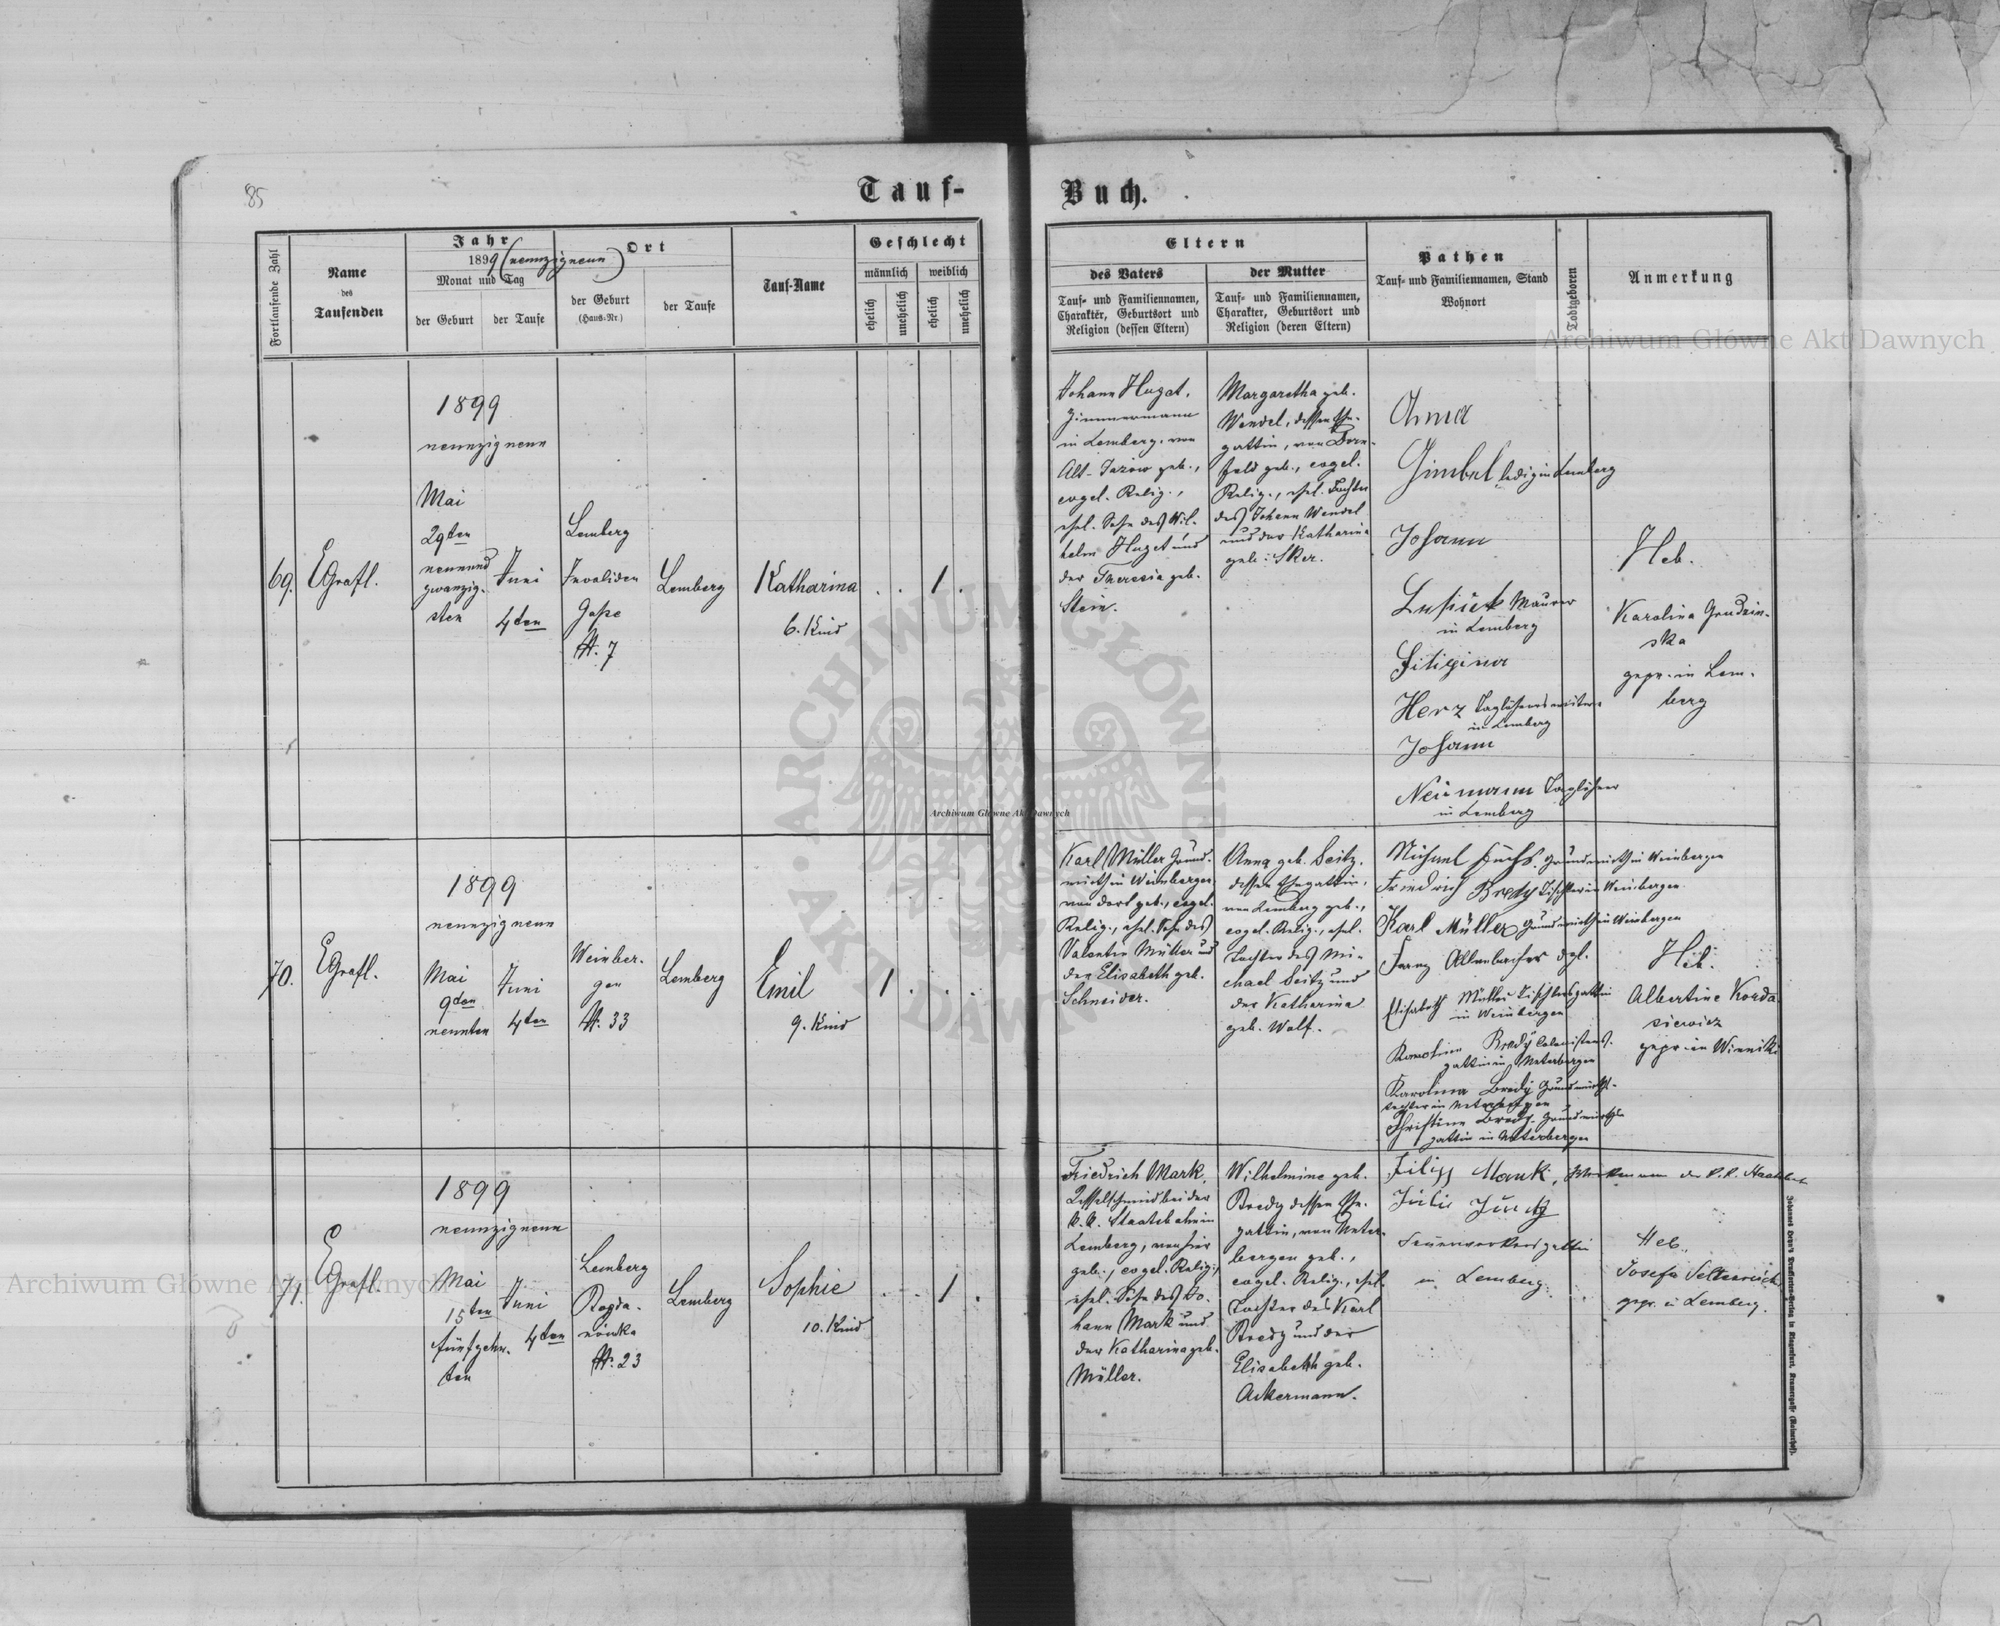 85
Tauf-
Buch.
Fortlaufende Zahl
Name
des
Taufenden
Jahr
1899 (neunzigneun)
Monat und Tag
der Geburt
der Taufe
Ort
der Geburt
(Haus-Nr.)
der Taufe
Tauf-Name
Geschlecht
männlich
weiblich
ehelich
unehelich
ehelich
unehelich
Eltern
des Vaters
Tauf- und Familiennamen,
Charakter, Geburtsort und
Religion (dessen Eltern)
der Mutter
Tauf- und Familiennamen,
Charakter, Geburtsort und
Religion (deren Eltern)
Pathen
Tauf- und Familiennamen, Stand
Wohnort
Todtgeboren
Anmerkung
69.
EGrafl.
1899
neunzigneun
Mai
29ten
neunund
zwanzig-
sten
Juni
4ten
Lemberg
Invaliden
Gasse
N. 7
Lemberg
Katharina
6. Kind
1
Johann Huget,
Zimmermann
in Lemberg, von
Alt-Jazow geb.,
evgel. Relig.,
ehel. Sohn des Wil-
helm Huget und
der Theresia geb.
Stein.
Margaretha geb.
Wendel, dessen Ehe-
gattin, von Dorn-
feld geb., evgel.
Relig., ehel. Tochter
des Johann Wendel
und der Katharina
geb: Sker.
Anna
Gimbel ledig in Lemberg
Johann
Maurer
in Lemberg
Filipina
Herz Taglöhners
in Lemberg
Johann
Neumann Taglöhner
in Lemberg
Heb.
Karolina Grudzin-
ska
gepr. in Lem-
berg
70.
EGrafl.
1899
neunzigneun
Mai
9ten
neunten
Juni
4ten
Weinber-
gen
N. 33
Lemberg
Emil
9. Kind
1
Karl Müller Grund-
wirth in Weinbergen
von dort geb., evgel.
Relig., ehel. Sohn des
Valentin Müller und
der Elisabeth geb.
Schneider.
Anna geb. Seitz,
dessen Ehegattin,
von Lemberg geb.,
evgel. Relig., ehel.
Tochter des Mi-
chael Seitz und
der Katharina
geb. Wolf.
Michael Fuchs, Grundwirth in Weinbergen
Friedrich Bredy Tischler in Weinbergen
Karl Müller Grundwirth in Weinbergen
Franz
Elisabeth Müller Tischlersgattin
in Weinbergen
Karoline Bredy Colonistens-
gattin in Unterbergen
Karolina Bredy Grundwirths-
tochter in Unterbergen
Christine Bredy Grundwirths
gattin in Unterbergen
Heb.
Albertine Korda
siewicz
gepr. in Winniki
71.
EGrafl.
1899
neunzigneun
Mai
15ten
fünfzehn-
ten
Juni
4ten
Lemberg
Bogda-
nówka
N. 23
Lemberg
Sophie
10. Kind
1
Friedrich Mark,
Kesselschmied bei der
k. k. Staatsbahn in
Lemberg, von hier
geb., evgel. Relig.,
ehel. Sohn des Jo-
hann Mark und
der Katharina geb.
Müller.
Wilhelmine geb.
Bredy dessen Ehe-
gattin, von Unter-
bergen geb.,
evgel. Relig., ehel.
Tochter des Karl
Bredy und der
Elisabeth geb.
Ackermann.
Filipp Mank, der k.k. Staatsbah
Julie
gattin
in Lemberg.
Heb.
Josefa
gepr. in Lemberg.
Archiwum Główne Akt Dawnych
Archiwum Główne Akt Dawnych
Archiwum Główne Akt Dawnych
ARCHIWUM GŁÓWNE AKT DAWNYCH